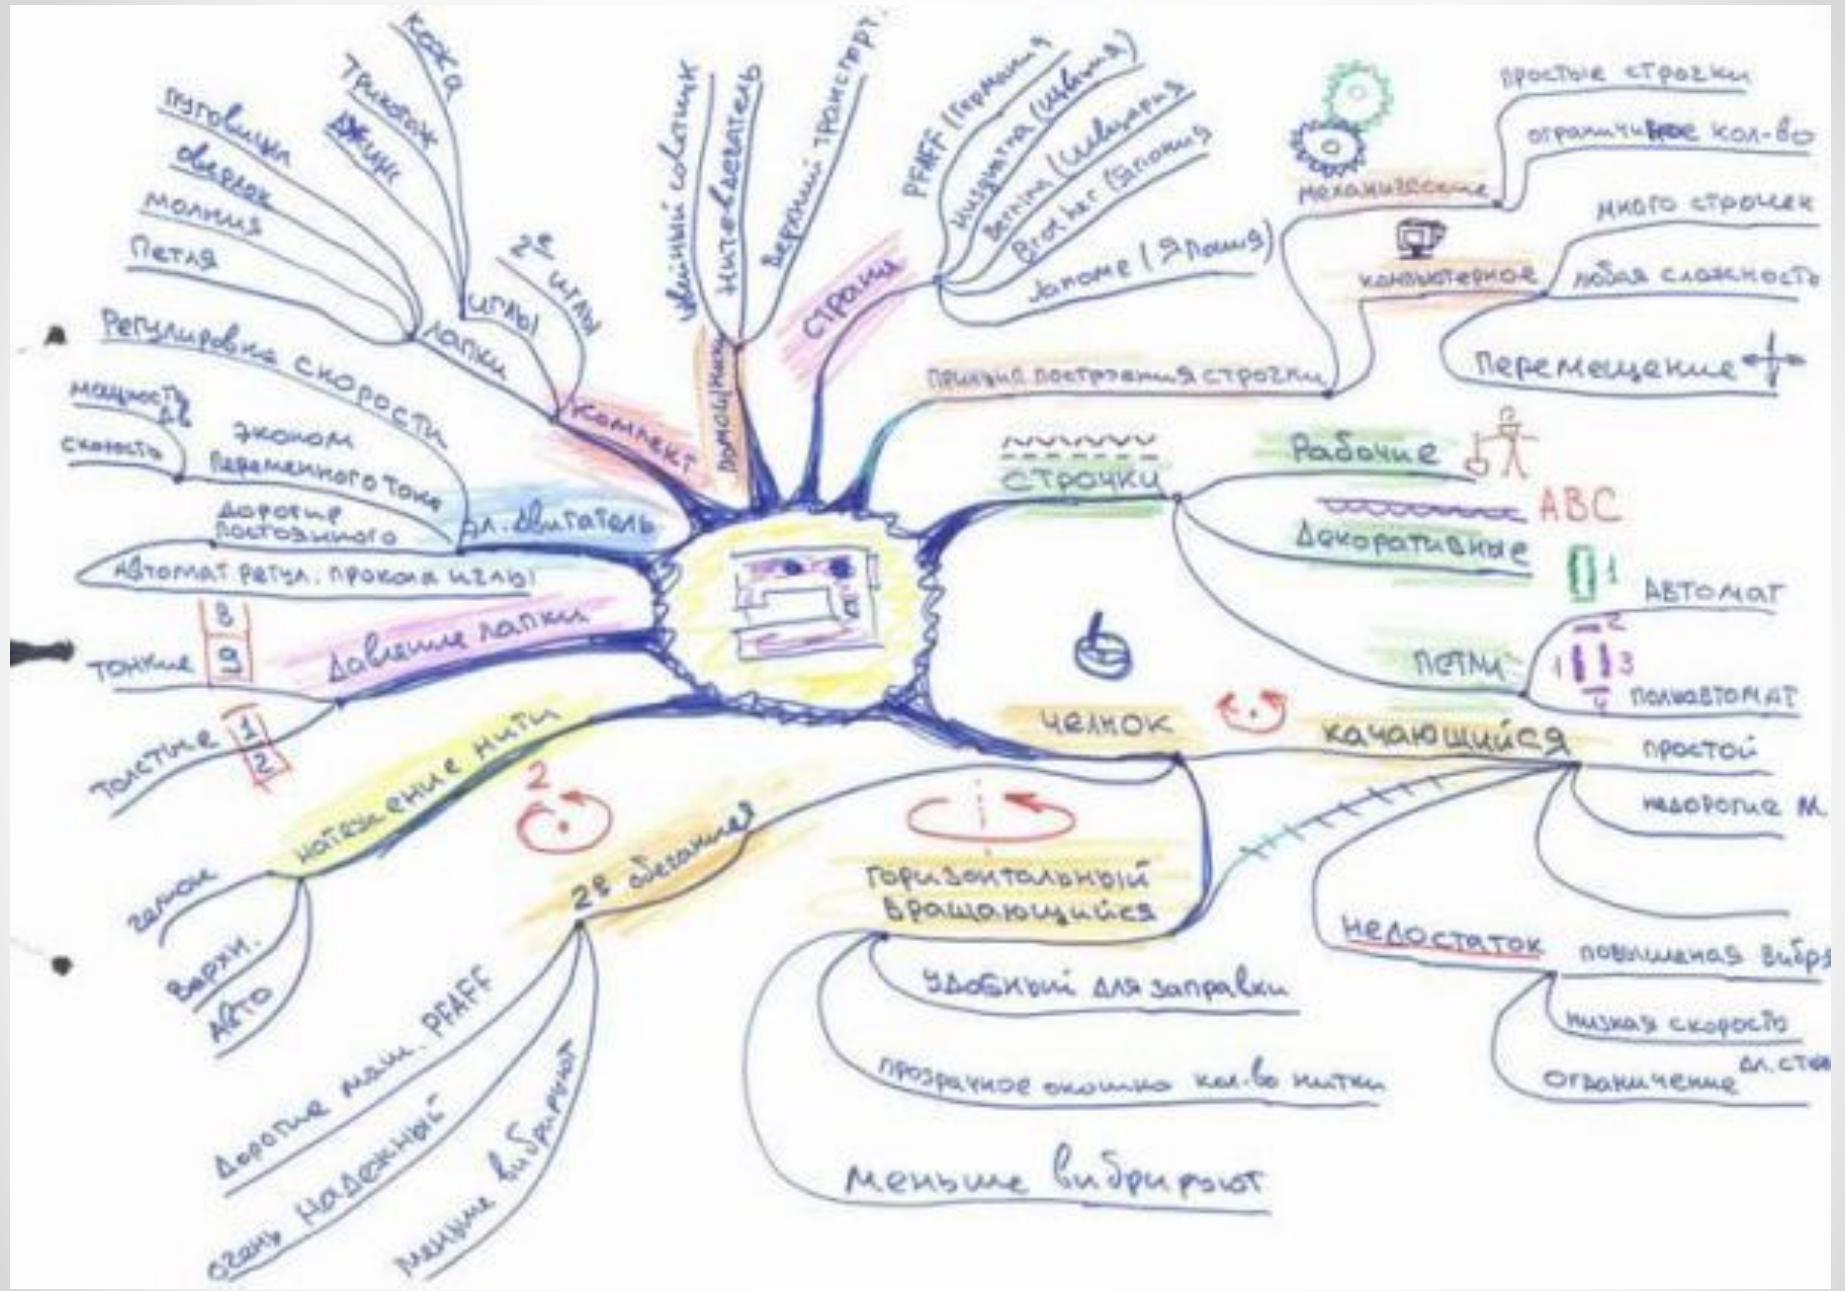 кожа
трикотаж
джинс
пуговица
оверлок
молния
Петля
лапки
иглы
2е иглы
комплект
швейный советник
нитевдеватель
Верхний транспорт.
помощники
страна
PFAFF (Германия
Husqvarna (Швеция)
Bernina (Швейцария
Brother (Япония
Janome (Япония)
принцип построения строчки
механические
простые строчки
кол-во
компьютерное
много строчек
любая сложность
Перемещение
строчки
Рабочие
Декоративные
ABC
петли
1
автомат
2
1
3
4
полуавтомат
челнок
качающийся
простой
недорогие м.
недостаток
низкая скорость
ограничение
горизонтальный
вращающийся
удобный для заправки
прозрачное окошко кол-во нитки
меньше вибрируют
2
2х обегания
дорогие маш. PFAFF
очень надежный
меньше вибрируют
натяжение нити
челнок
верхн.
авто
давление лапки
тонкие
8
9
толстые
1
2
эл. двигатель
Регулировка скорости
эконом
переменного тока
мощность
дв
скорость
дорогие
постоянного
Автомат. регул. прокола иглы